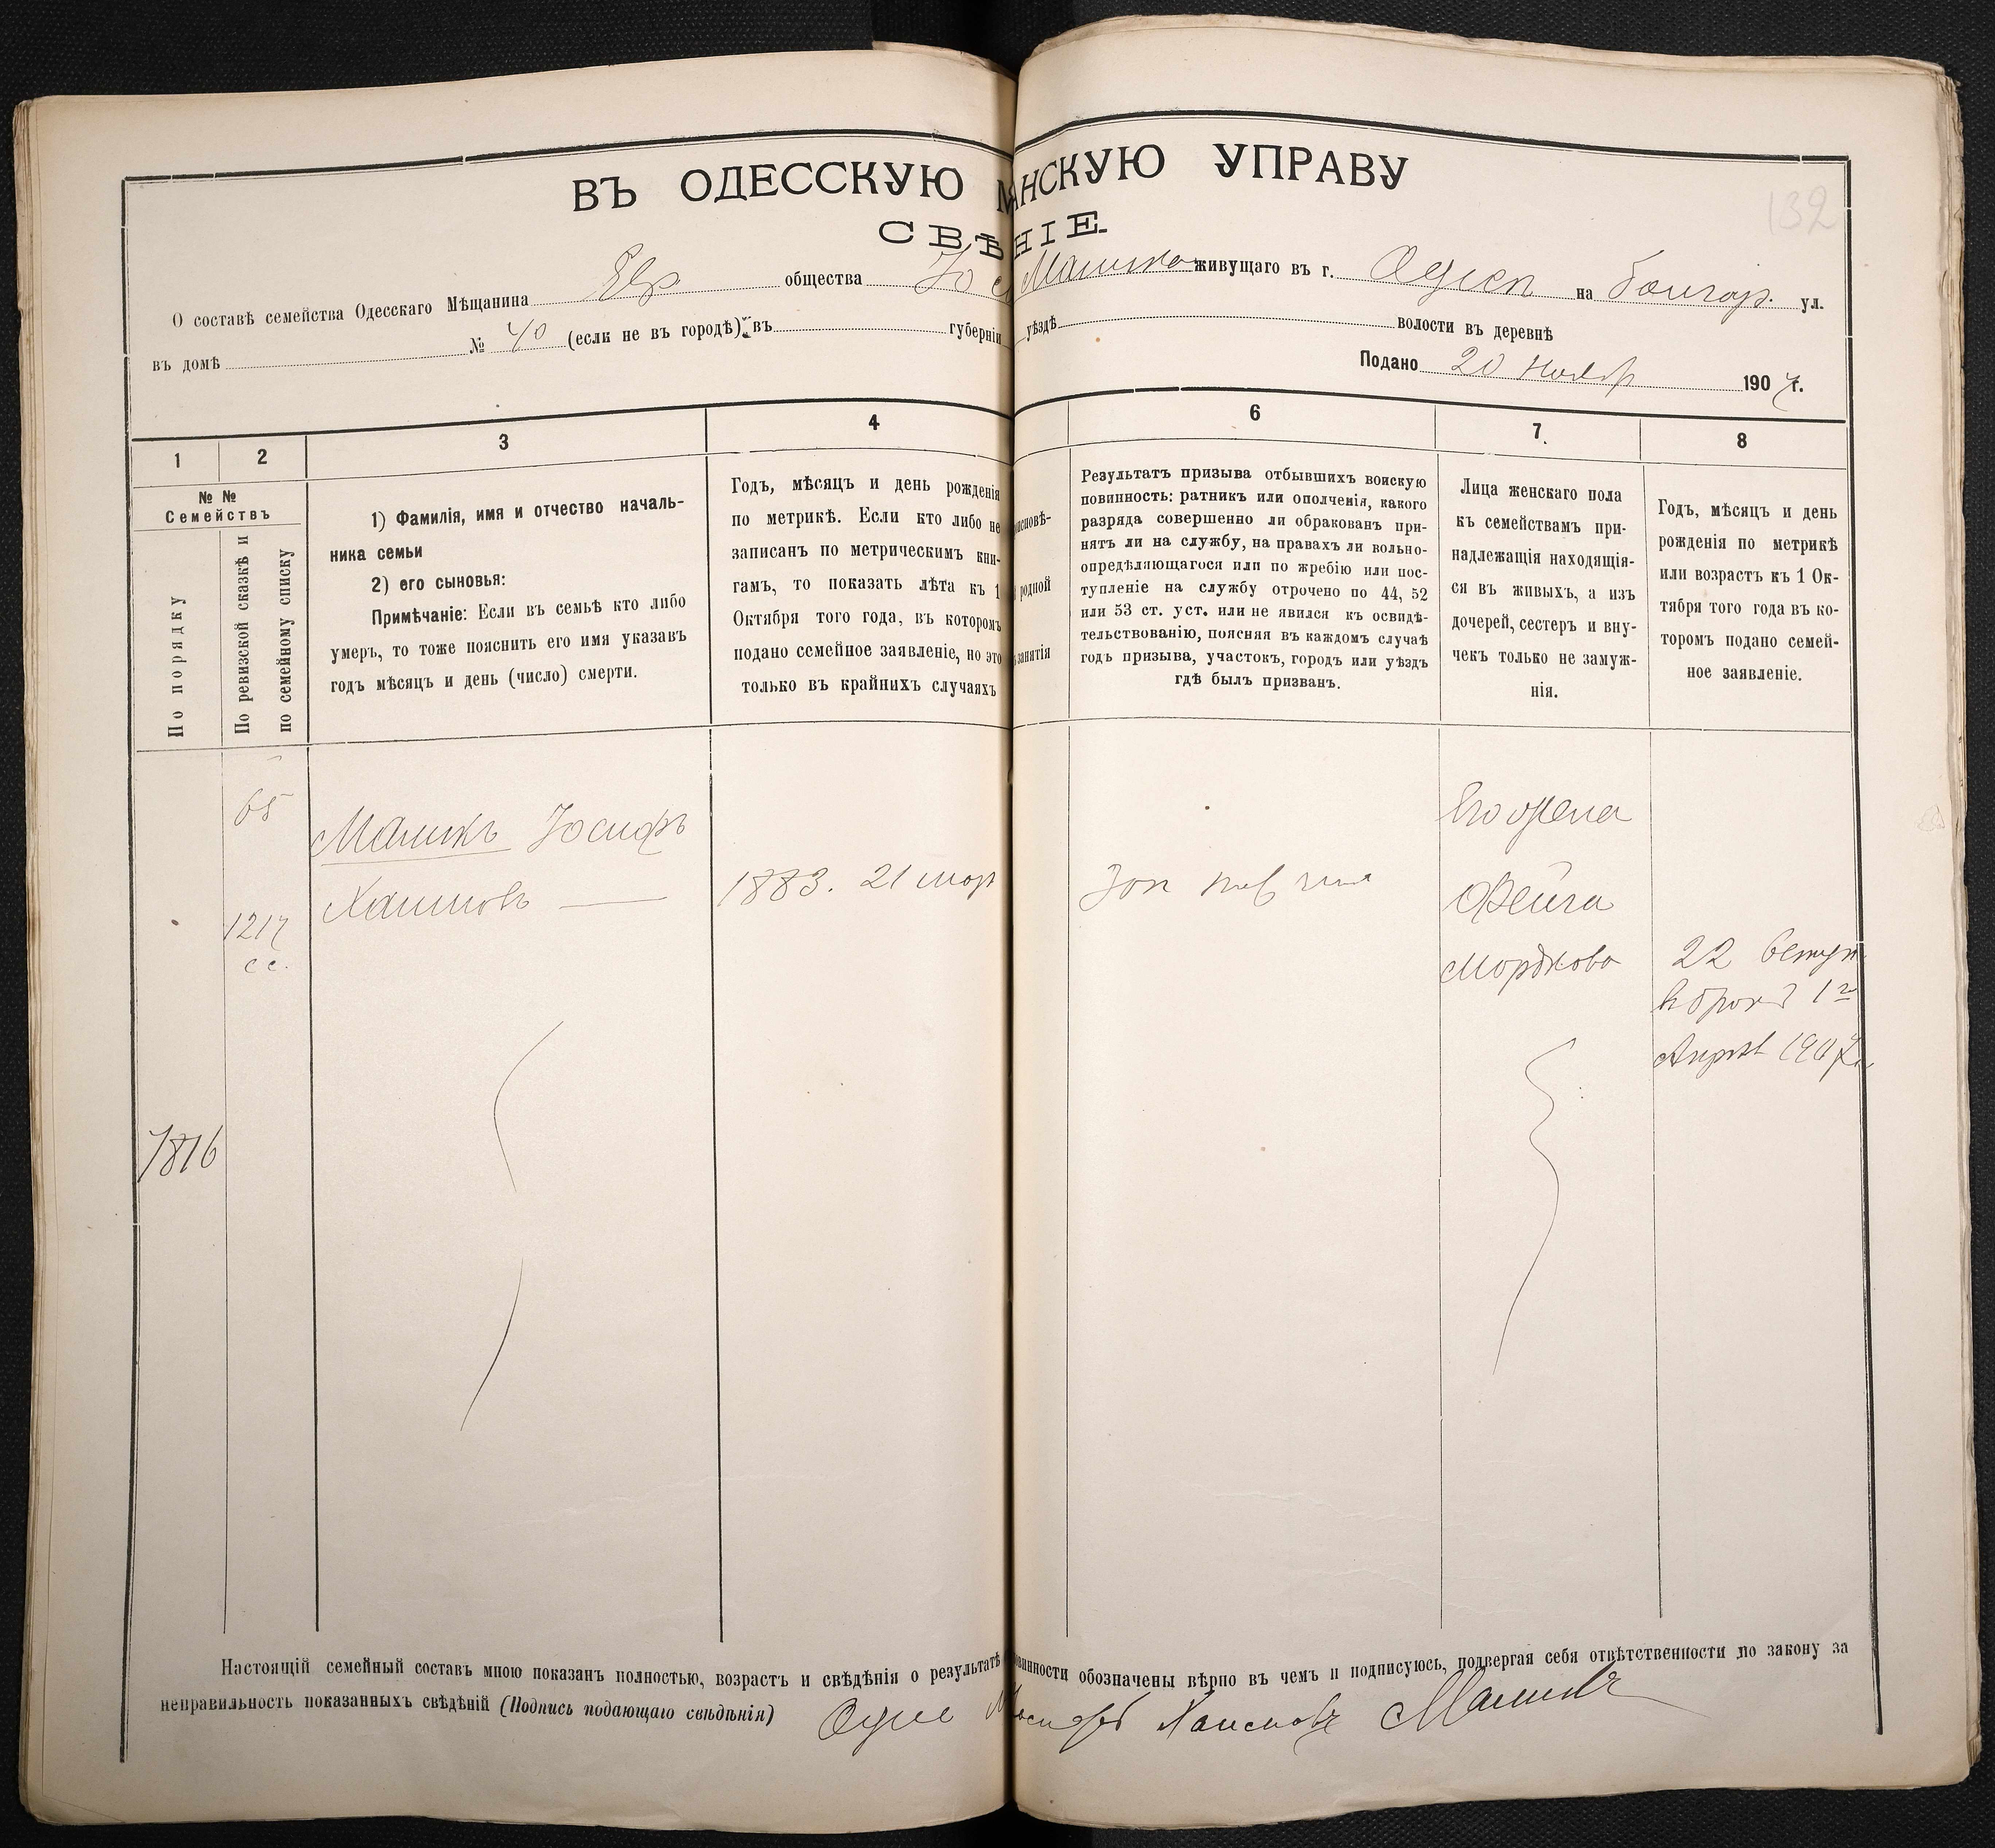 132
ВЪ ОДЕССКУЮ М АНСКУЮ УПРАВУ
СВѢ НІЕ.
О составѣ семейства Одесскаго Мѣщанина Евр общества Іос Малика живущаго въ г. Одессѣ на Болгар. ул.
въ домѣ № 40 (если не въ городѣ) въ губерніи уѣздѣ волости въ деревнѣ
Подано 20 Нояб 1907 г.
1 2 3 4 6 7. 8
№ №
Семействъ
По порядку
По ревизской сказкѣ и
по семейному списку
1) Фамилія, имя и отчество началь-
ника семьи
2) его сыновья:
Примѣчаніе: Если въ семьѣ кто либо
умеръ, то тоже пояснить его имя указавъ
годъ мѣсяцъ и день (число) смерти.
Годъ, мѣсяцъ и день рожденія
по метрикѣ. Если кто либо не
записанъ по метрическимъ кни-
гамъ, то показать лѣта къ 1
Октября того года, въ которомъ
подано семейное заявленіе, но это
только въ крайнихъ случаяхъ
исповѣ-
родной
занятія
Результатъ призыва отбывшихъ воискую
повинность: ратникъ или ополченія, какого
разряда совершенно ли обракованъ при-
нятъ ли на службу, на правахъ ли вольно-
опредѣляющагося или по жребію или пос-
тупленіе на службу отрочено по 44, 52
или 53 ст. уст. или не явился къ освидѣ-
тельствованію, поясняя въ каждомъ случаѣ
годъ призыва, участокъ, городъ или уѣздъ
гдѣ былъ призванъ.
Лица женскаго пола
къ семействамъ при-
надлежащія находящія-
ся въ живыхъ, а изъ
дочерей, сестеръ и вну-
чекъ только не замуж-
нія.
Годъ, мѣсяцъ и день
рожденія по метрикѣ
или возрастъ къ 1 Ок-
тября того года въ ко-
торомъ подано семей-
ное заявленіе.
65
Маликъ Іосифъ
Хаимовъ
1217
сс.
1883. 21 мар
Его жена
Фейга
Мордкова
22 вступ
в бракъ 1го
Апрѣл 1907 г.
7816
Настоящій семейный составъ мною показанъ полностью, возрастъ и свѣдѣнія о результатѣ овинности обозначены вѣрно въ чемъ и подписуюсь, подвергая себя отвѣтственности по закону за
неправильность показанныхъ свѣдѣній (Подпись подающаго свѣдѣнія) Іосифъ Хаимовъ Маликъ